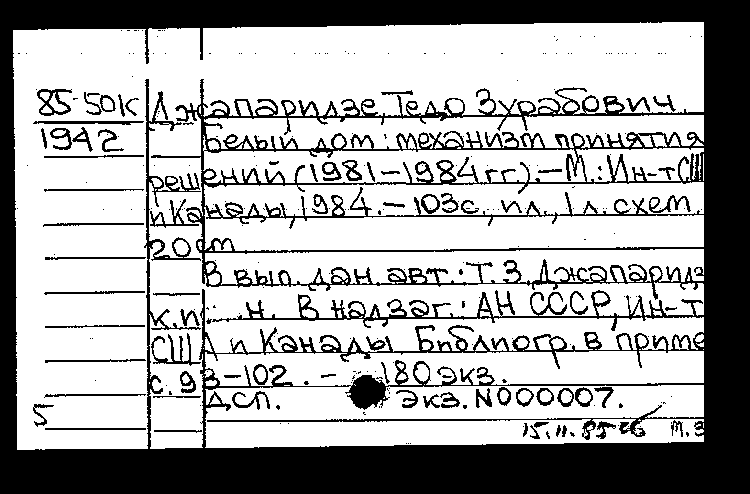 85-50К Джапаридзе, Тедо Зурабович.
1942 Белый дом: механизм принятия
решений (1981-1984 гг).-М.: Ин-т США
и Канады, 1984.-103с., пл., 1 л. схем.
20 cm
В вып. дан. авт.: Т. З. Джапаридз
к. н. В надзаг.: АН СССР, Ин-т
США и Канады Библиогр. в приме
с. 93-102. - 180 экз.
ДСП. Экз. N000007.
5
15.11.85 м.з